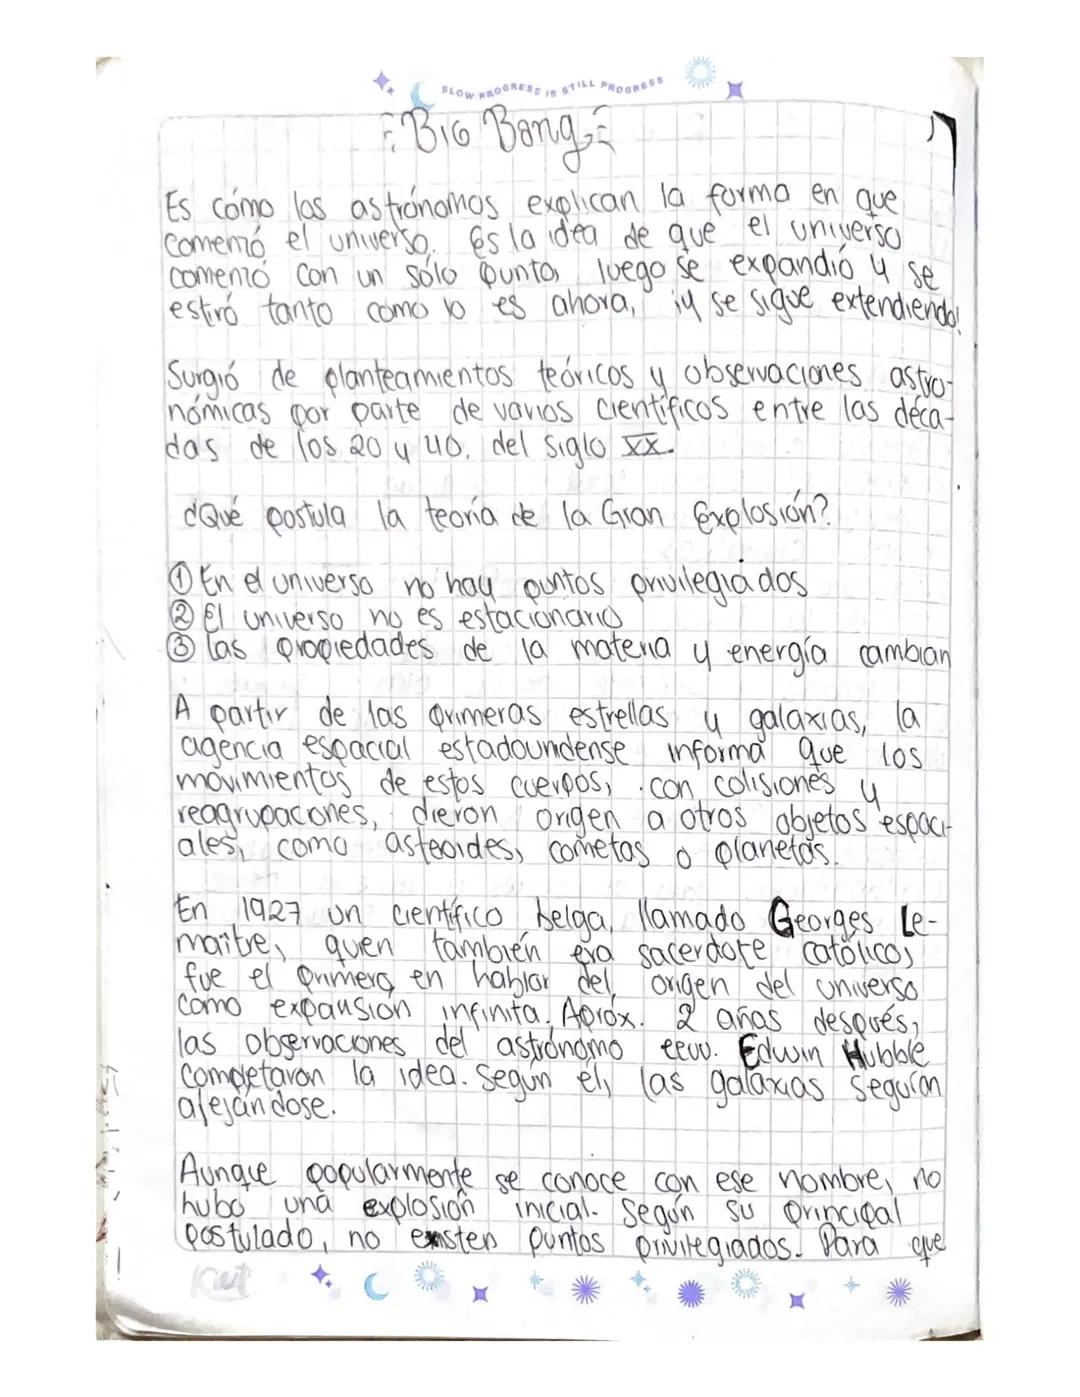 SLOW PROGRESS IS STILL PROGRESS
Big Bang
Es cómo los astrónomos explican la forma en que
comenzó el universo. Es la idea de que el universo
comenzó con un sólo punto, luego se expandió y se
estiró tanto como lo es ahora, ¡y se sigue extendiendo!
Surgió de planteamientos teóricos y observaciones astro-
nómicas por parte de varios científicos entre las déca-
das de los 20 y 40, del siglo XX.
¿Qué postula la teoría de la Gran Explosión?
① En el universo no hay puntos privilegiados
② El universo no es estacionario
③ Las propiedades de la materia y energía cambian
A partir de las primeras estrellas y galaxias, la
agencia espacial estadounidense informa que los
movimientos de estos cuerpos, con colisiones y
reagrupaciones, dieron origen a otros objetos espaci-
ales, como asteoides, cometas o planetas.
En 1927 un científico belga, llamado Georges Le-
maitre, quien también era sacerdote católico,
fue el primero en hablar del origen del universo
como expansión infinita. Apróx. 2 años después,
las observaciones del astrónomo eeuu. Edwin Hubble
completaron la idea. Según él, las galaxias seguían
alejándose.
Aunque popularmente se conoce con ese nombre, no
hubo una explosión inicial. Según su principal
postulado, no existen puntos privilegiados. Para que